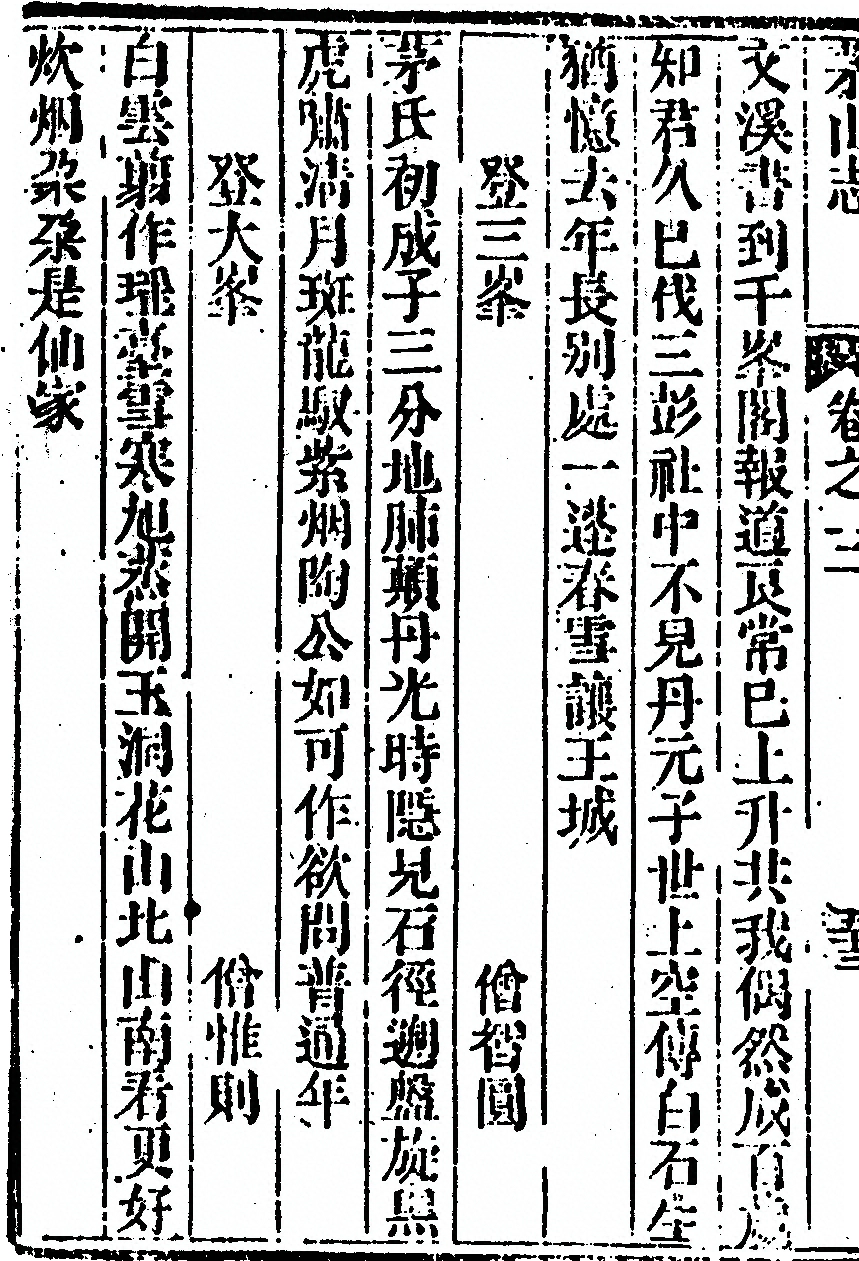 茅山志 卷之二
文溪書到千峯閣報道艮常巳上升共我偶然成百
知君久巳伐三彭社中不見丹元子世上空傳白石生
猶憶去年長别處一蓬春雪讓王城
登三峯 僧智圓
茅氏初成子三分地肺顛丹光時隠見石徑遡盤旋黒
虎嘯清月斑龍馭紫烟陶公如可作欲問普通年
登大峯 僧惟則
白雲剪作瑶臺雪寒旭蒸開玉洞花山北山南看更好
炊烟朶朶是仙家